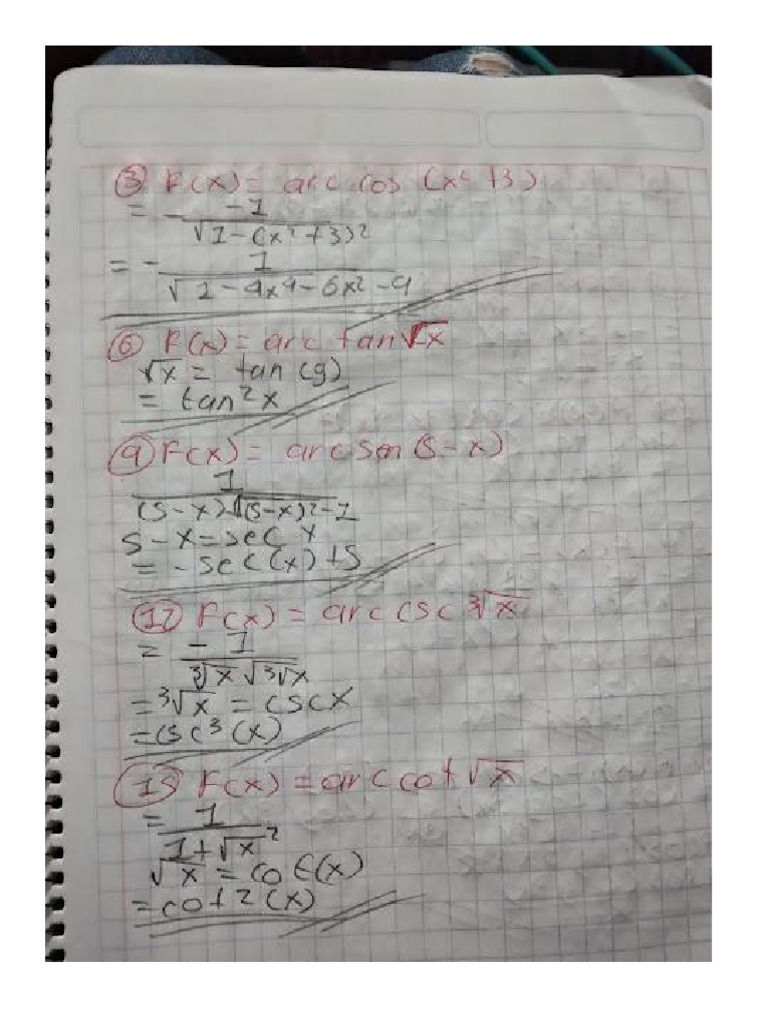 ③ F(x) = arc cos (x² + 3)
= - -1 / √1-(x²+3)²
= - 1 / √1-9x⁴-6x²-9
⑥ F(x) = arc tan √x
√x = tan (y)
= tan² x
⑨ F(x) = arc sen (5-x)
1 / (5-x)√(5-x)²-1
5-x = sec x
= -sec (x) + 5
⑫ F(x) = arc csc ³√x
= -1 / ³√x √³√x
= ³√x = csc x
= csc³ (x)
⑮ F(x) = arc cot √x
= 1 / 1+√x²
√x = cot(x)
= cot2 (x)